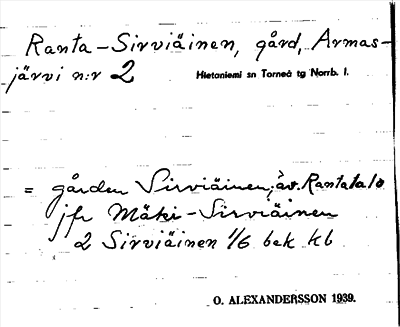 Ranta-Sirviäinen, gård, Armas-
järvi n:r 2 Hietaniemi sn Torneå tg Norrb. l.
= gården Sirviäinen; äv. Rantatalo
jfr Mäki-Sirviäinen
2 Sirviäinen 1/6 bek kb
O. ALEXANDERSSON 1939.